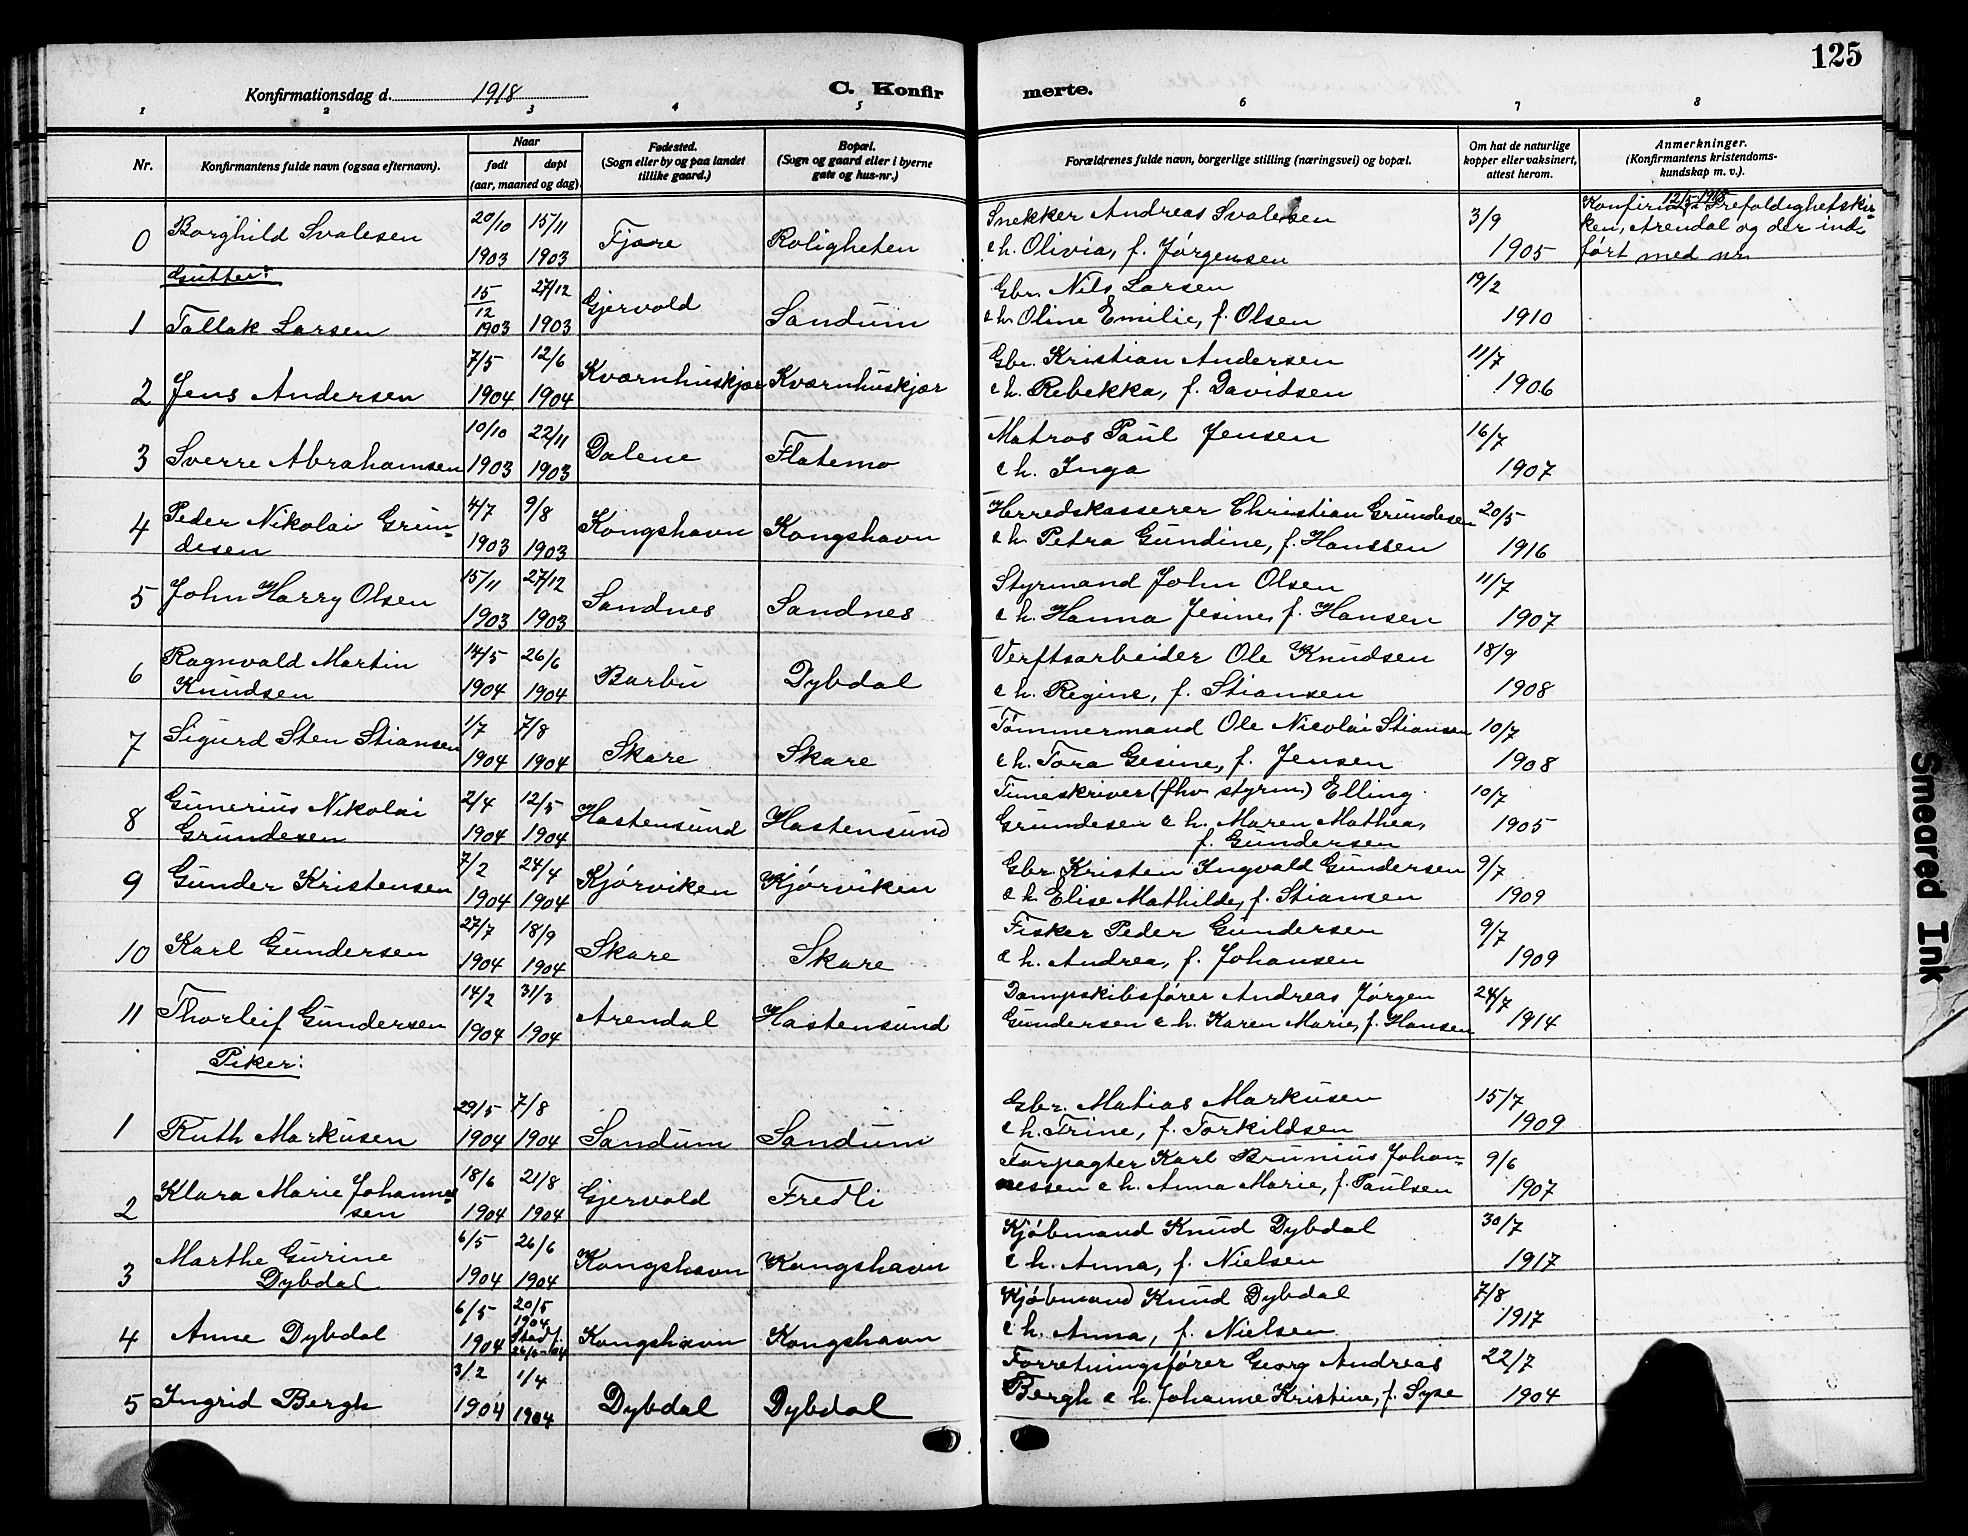 125
Konfirmationsdag d. 1918 C. Konfirmerte.
1 2 3 4 5 6 7 8
Nr. Konfirmantens fulde navn (ogsaa efternavn). Naar født døpt (aar, maaned og dag) Fødested. (Sogn eller by og paa landet tillike gaard.) Bopæl. (Sogn og gaard eller i byerne gate og hus-nr.) Forældrenes fulde navn, borgerlige stilling (næringsvei) og bopæl. Om hat de naturlige kopper eller vaksinert, attest herom. Anmerkninger. (Konfirmantens kristendoms-kundskap m. v.).
0 Borghild Svalesen 20/10 1903 15/11 1903 Fjære Roligheten Snekker Andreas Svalesen e h. Olivia, f. Jørgensen 3/9 1905 Konfirm. 12/5-1918 i Trefoldighetskirken, Arendal og der indført med nr.
Gutter:
1 Tallak Larsen 15/12 1903 27/12 1903 Gjervold Sandum Gbr. Nils Larsen e h. Oline Emilie, f. Olsen 19/2 1910
2 Jens Andersen 7/5 1904 12/6 1904 Kvarnhuskjær Kvarnhuskjær Gbr. Kristian Andersen e h. Rebekka, f. Davidsen 11/7 1906
3 Sverre Abrahamsen 10/10 1903 22/11 1903 Dalene Flatemo Matros Paul Jensen e h. Inga 16/7 1907
4 Peder Nikolai Grundesen 4/7 1903 9/8 1903 Kongshavn Kongshavn Herredskasserer Christian Grundesen e h. Petra Gundine, f. Hanssen 20/5 1916
5 John Harry Olsen 15/11 1903 27/12 1903 Sandnes Sandnes Styrmand John Olsen e h. Hanna Jesine, f. Hansen 11/7 1907
6 Ragnvald Martin Knudsen 14/5 1904 26/6 1904 Barbu Dybdal Verftsarbeider Ole Knudsen e h. Regine, f. Stiansen 18/9 1908
7 Sigurd Sten Stiansen 1/7 1904 7/8 1904 Skare Skare Tømmermand Ole Nicolai Stiansen e h. Tora Gesine, f. Jensen 10/7 1908
8 Gunerius Nikolai Grundesen 2/4 1904 12/5 1904 Hastensund Hastensund Timeskriver (fhv styrm) Elling Grundesen e h. Maren Mathea, f. Gundersen 10/7 1905
9 Gunder Kristensen 7/2 1904 24/4 1904 Kjørviken Kjørviken Gbr. Kristen Ingvald Gundersen e h. Elise Mathilde, f. Stiansen 9/7 1909
10 Karl Gundersen 27/7 1904 18/9 1904 Skare Skare Fisker Peder Gundersen e h. Andrea, f. Johansen 9/7 1909
11 Thorleif Gundersen 14/2 1904 31/3 1904 Arendal Hastensund Dampskibsfører Andreas Jørgen Gundersen e h. Karen Marie, f. Hansen 24/7 1914
Piker:
1 Ruth Markusen 29/5 1904 7/8 1904 Sandum Sandum Gbr. Matias Markusen e h. Trine, f. Torkildsen 15/7 1909
2 Klara Marie Johannessen 18/6 1904 21/8 1904 Gjervold Fredli Forpagter Karl Brunius Johannessen e h. Anna Marie, f. Paulsen 9/6 1907
3 Marthe Gurine Dybdal 6/5 1904 26/6 1904 Kongshavn Kongshavn Kjøbmand Knud Dybdal e h. Anna, f. Nielsen 30/7 1917
4 Anne Dybdal 6/5 1904 20/5 1904 Stadf. 26/6-04 Kongshavn Kongshavn Kjøbmand Knud Dybdal e h. Anna, f. Nielsen 7/8 1917
5 Ingrid Bergh 3/2 1904 1/4 1904 Dybdal Dybdal Forretningsfører Georg Andreas Bergh e h. Johanne Kristine, f. Syse 22/7 1904
Smeared Ink